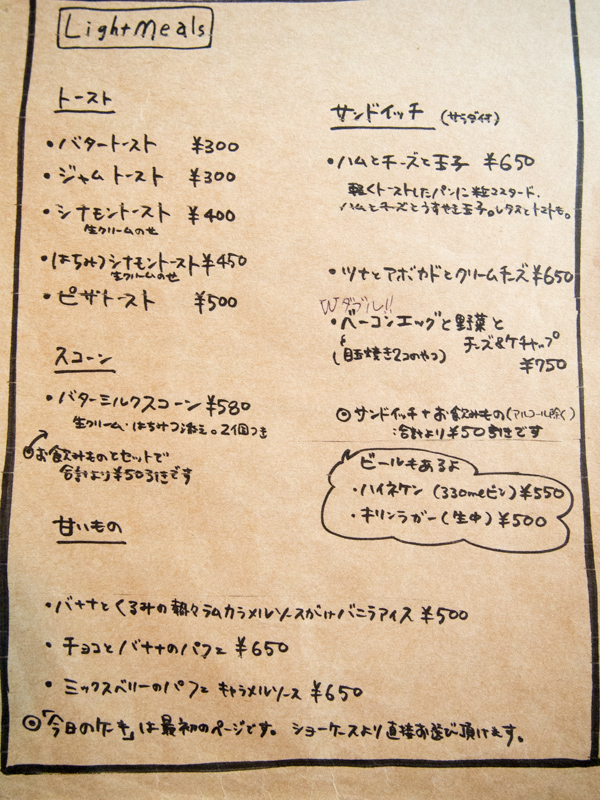 Light Meals
トースト
・バタートースト ¥300
・ジャムトースト ¥300
・シナモントースト ¥400
生クリームのせ
・はちみつシナモントースト¥450
生クリームのせ
・ピザトースト ¥500
スコーン
・バターミルクスコーン¥580
生クリーム・はちみつ添え。2個つき
◎お飲みものとセットで
合計より¥50引きです
サンドイッチ (サラダ付)
・ハムとチーズと玉子 ¥650
軽くトーストしたパンに粒マスタード、
ハムとチーズとうすやき玉子。レタスとトマトも。
・ツナとアボカドとクリームチーズ¥650
Wダブル!!
・ベーコンエッグと野菜と
チーズ&ケチャップ
(目玉焼き2つのやつ)
¥750
◎サンドイッチ+お飲みもの(アルコール除く)
:合計より¥50引きです
ビールもあるよ
・ハイネケン (330mlビン)¥550
・キリンラガー(生中)¥500
甘いもの
・バナナとくるみの熱々ラムカラメルソースがけバニラアイス ¥500
・チョコとバナナのパフェ ¥650
・ミックスベリーのパフェ キャラメルソース ¥650
◎「今日のケーキ」は最初のページです。ショーケースより直接お選び頂けます。